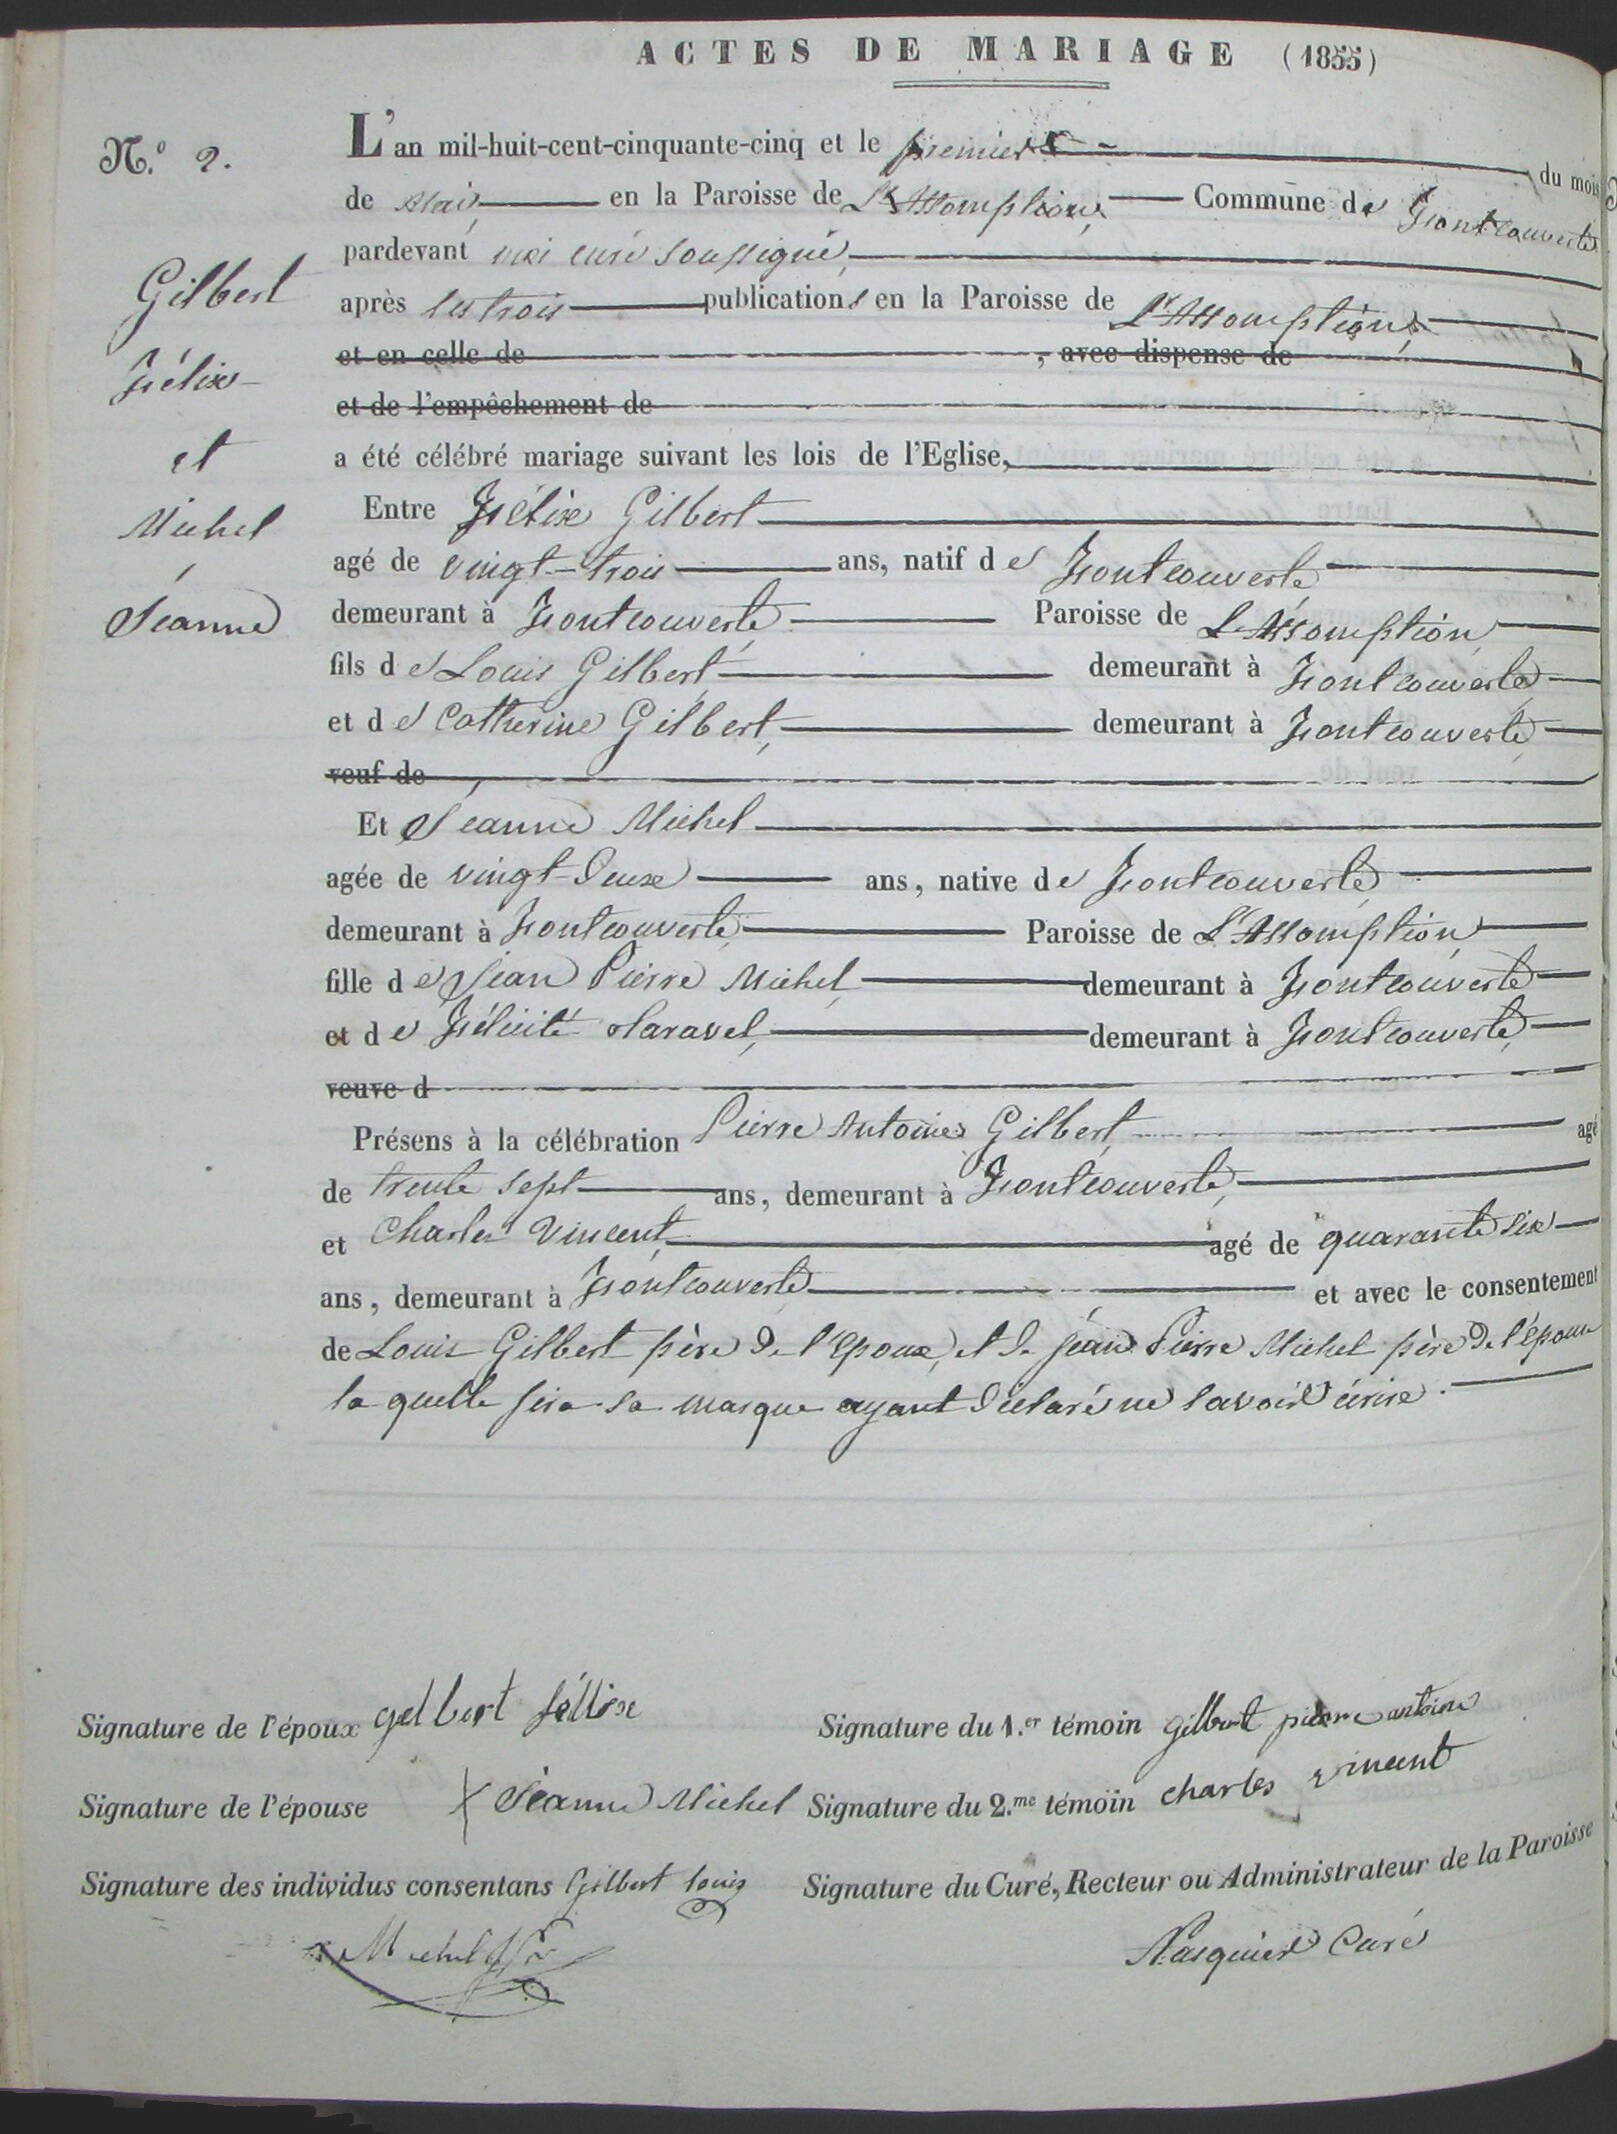 ACTES DE MARIAGE (1855)
N.º 2.
L'an mil-huit-cent-cinquante-cinq et le premier du mois
de mai, en la Paroisse de L'Assomption, Commune de Fontcouverte
pardevant moi curé soussigné,
après les trois publications en la Paroisse de L'Assomption,
et en celle de , avec dispense de
et de l'empêchement de
a été célébré mariage suivant les lois de l'Eglise,
Gilbert
Félix
et
Michel
Jeanne
Entre Félix Gilbert
agé de vingt-trois ans, natif de Fontcouverte,
demeurant à Fontcouverte Paroisse de L'Assomption,
fils de Louis Gilbert, demeurant à Fontcouverte,
et de Catherine Gilbert, demeurant à Fontcouverte,
veuf de
Et Jeanne Michel
agée de vingt-deux ans, native de Fontcouverte,
demeurant à Fontcouverte, Paroisse de L'Assomption,
fille de Jean Pierre Michel, demeurant à Fontcouverte
et de Félicité Naravel, demeurant à Fontcouverte,
veuve d
Présens à la célébration Pierre Antoine Gilbert, agé
de trente sept ans, demeurant à Fontcouverte,
et Charles Vincent, agé de quarante six
ans, demeurant à Fontcouverte et avec le consentement
de Louis Gilbert père de l'epoux, et de Jean Pierre Michel père de l'épouse
la quelle fera sa marque ayant déclaré ne savoir écrire.
Signature de l'époux gelbert féllixe
Signature du 1.er témoin gilbert pierre antoine
Signature de l'épouse X Jeanne Michel
Signature du 2.me témoin charles vincent
Signature des individus consentans Gilbert louis
Signature du Curé, Recteur ou Administrateur de la Paroisse
Michel
Curé